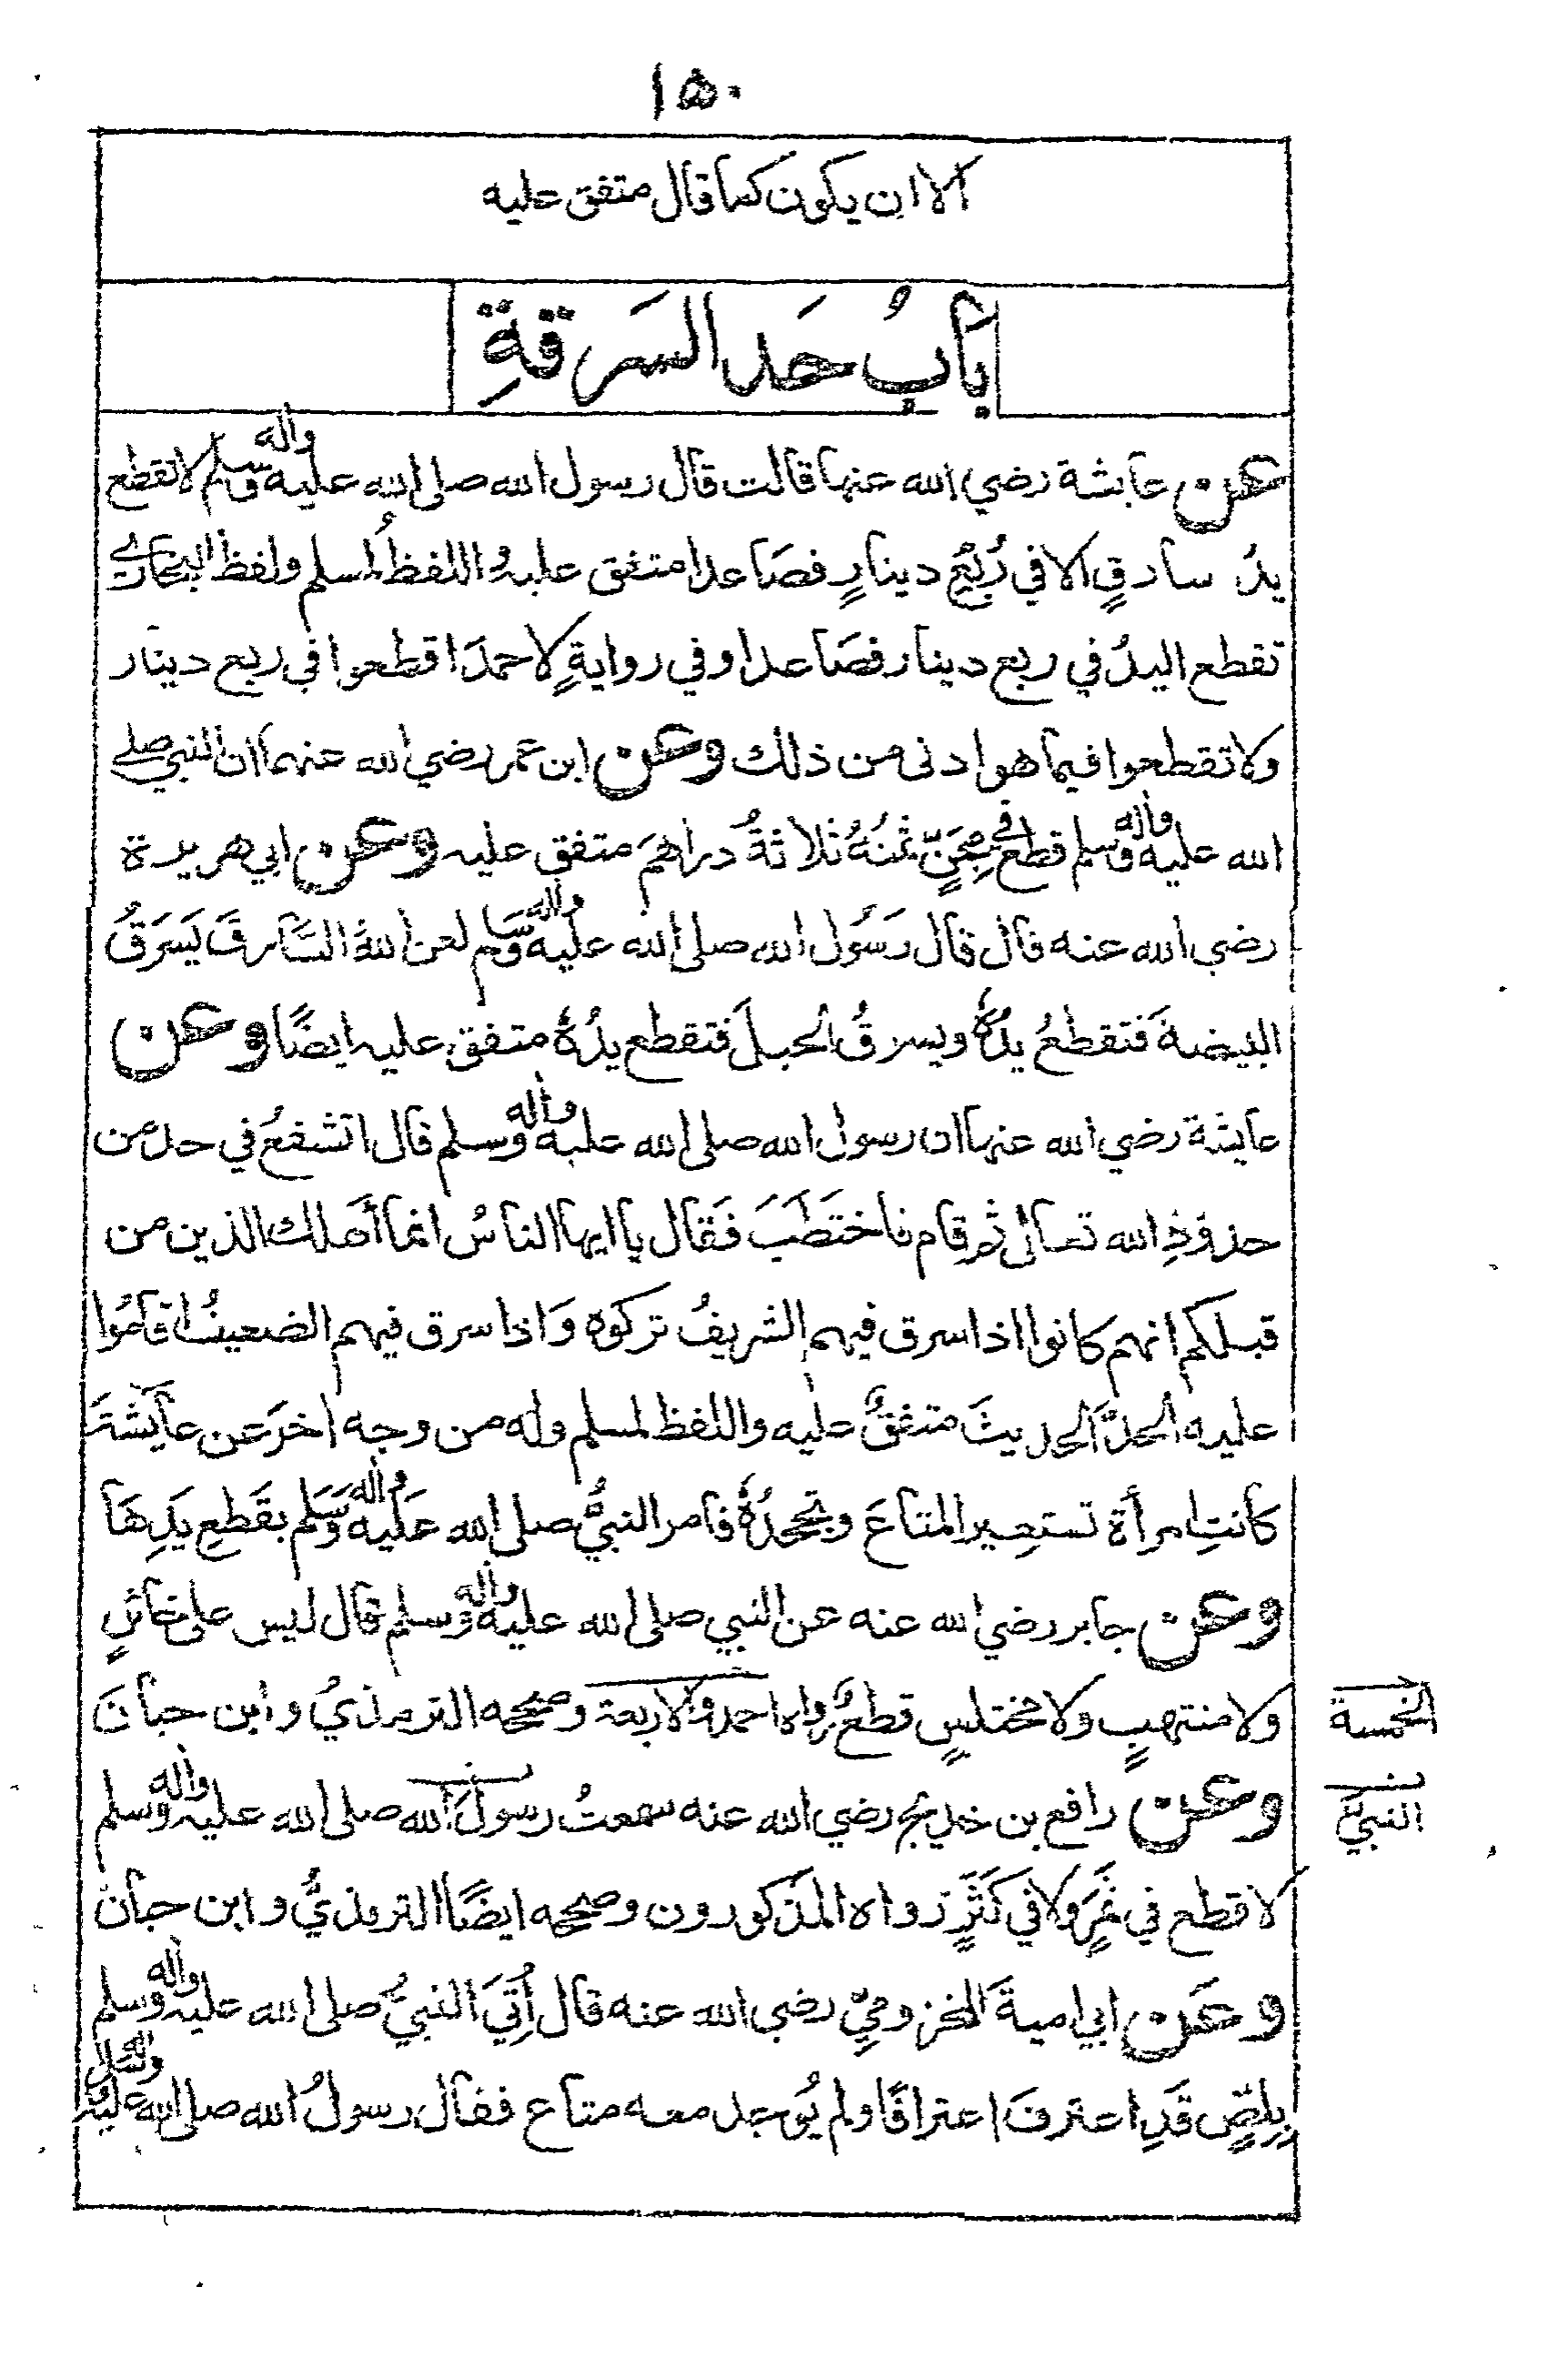 ١٥٠
الا ان يكون كما قال متفق عليه
بابُ حَد السَرقةِ
عن عايشة رضي الله عنها قالت قال رسول الله صلى الله عليه واله وسلم لا تقطع
يدُ سارقٍ الا في رُبُعِ دينارٍ فصَاعدا متفق عليه واللفظُ لمُسلم ولفظ البخاري
تقطع اليدُ في ربع دينار فصَاعدا وفي روايةٍ لاحمدَ اقطعوا في ربع دينار
ولا تقطعوا فيما هو ادنى من ذلك وعن ابن عمر رضي الله عنهما ان النبي صلى
الله عليه واله وسلم قطع في مِجَنٍّ ثمنُهُ ثلاثةُ دراهمَ متفق عليه وعن ابي هريرة
رضي الله عنه قال قال رسُول الله صلى الله عليه واله وسلم لعن اللهُ السَّارقَ يَسرَقُ
البيضةَ فتقطعُ يدُهُ ويسرقُ الحبلَ فتقطع يدُهُ متفق عليه ايضًا وعن
عايشة رضي الله عنها ان رسول الله صلى الله عليه واله وسلم قال اتشفعُ في حد من
حدوُدِ الله تعالى ثم قام فاختَطَبَ فَقال يا ايها الناسُ انما أهلك الذين من
قبلكم انهم كانوا اذا سرق فيهم الشريفُ تركوه وَاذا سرق فيهم الضعيفُ اقامُوا
عليه الحدَّ الحديثَ متفقٌ عليه واللفظ لمسلم وله من وجه اخرَ عن عآيشَةَ
كانتِ امرأة تستعِير المتاعَ وتجحدُهُ فامر النبيُّ صلى الله عَلَيه واله وَسَلم بقَطعِ يَدِهَا
وعن جابر رضي الله عنه عن النبي صلى الله عليه واله وسلم قال ليس على خائنٍ
ولا منتهبٍ ولا مختلسٍ قطعٌ رواه احمد والاربعة وصححه الترمذيُ وابن حبانَ
الخمسة
وعن رافع بن خديج رضي الله عنه سمعتُ رسولَ الله صلى الله عليه واله وسلم
النبيَّ
لا قطع في ثمَرٍ ولا في كَثَرٍ رواه المذكورون وصححه ايضًا الترمذيُّ وابن حبان
وعَن ابي اميةَ المخزوميِّ رضي الله عنه قال أُتِيَ النبيُّ صلى الله عليه واله وسلم
بِلِصٍّ قَدِ اعترفَ اعترافًا ولم يُوجد معه متاع فقال رسولُ الله صلى الله عليه واله وسلم